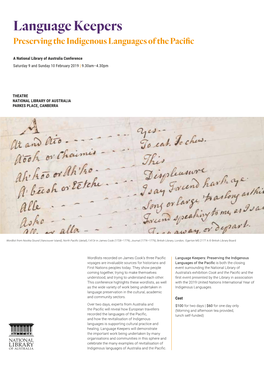 Language Keepers
Preserving the Indigenous Languages of the Pacific
A National Library of Australia Conference
Saturday 9 and Sunday 10 February 2019 | 9.30am–4.30pm
THEATRE
NATIONAL LIBRARY OF AUSTRALIA
PARKES PLACE, CANBERRA
A
Ai and Aio
Yes
Aooh or Chaimis
To eat, To chew,
Ah'hoo or Ah'ho
This
Displeasure
I say friend hark ye
Alle
Asho
Friend speaking to
go away or depart
Wordlists recorded on James Cook's three Pacific
voyages are invaluable sources for historians and
First Nations peoples today. They show people
coming together, trying to make themselves
understood, and trying to understand each other.
This conference highlights these wordlists, as well
as the wide variety of work being undertaken in
language preservation in the cultural, academic
and community sectors.
Over two days, experts from Australia and
the Pacific will reveal how European travellers
recorded the languages of the Pacific,
and how the revitalisation of Indigenous
languages is supporting cultural practice and
healing. Language Keepers will demonstrate
the important work being undertaken by many
organisations and communities in this sphere and
celebrate the many examples of revitalisation of
Indigenous languages of Australia and the Pacific.
Language Keepers: Preserving the Indigenous
Languages of the Pacific is both the closing
event surrounding the National Library of
Australia's exhibition Cook and the Pacific and the
first event presented by the Library in association
with the 2019 United Nations International Year of
Indigenous Languages.
Cost
$105 for two days | $60 for one day only
(Morning and afternoon tea provided.
Lunch self-funded)
NATIONAL
LIBRARY
OF AUSTRALIA